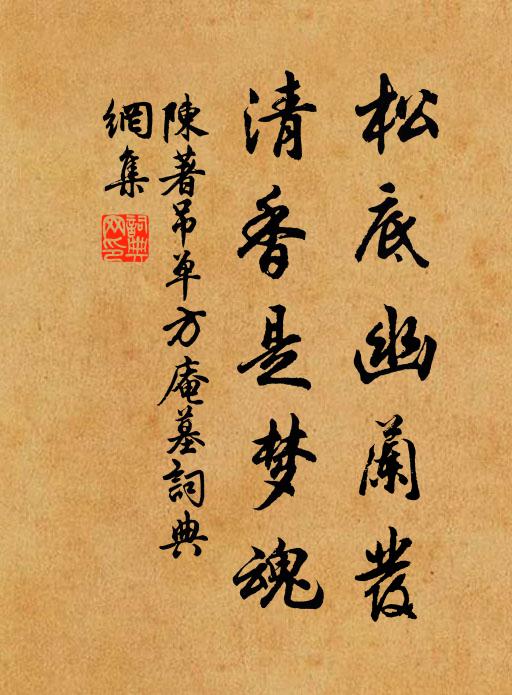 松底幽蘭發
清香是梦魂
陳著吊单方庵墓詞典
網集
詞典
网印